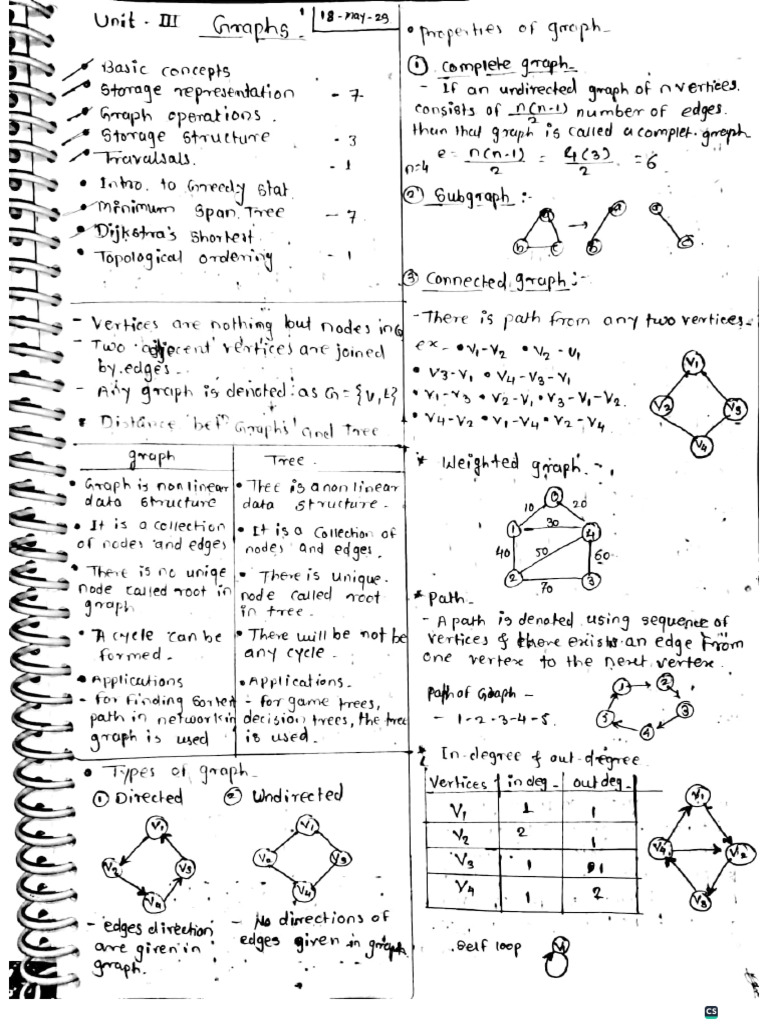 Unit - III Graphs.
18-may-23
Basic concepts
Storage representation - 7
Graph operations.
Storage structure - 3
Travalsals. - 1
• Intro. to Greedy Stat.
Minimum Span. Tree - 7
Dijkstra's Shortest
• Topological ordering - 1
- Vertices are nothing but nodes in G
- Two adjecent vertices are joined
by edges.
- Any graph is denoted as G = {V, E}
* Distance betn Graphs and Tree
graph
• Graph is non linear
data structure
• It is a collection
of nodes and edges
• There is no uniqe
node called root in
graph
• A cycle can be
formed.
• Applications
- for finding sorted
path in network in
graph is used
Tree.
• Tree is a non linear
data structure.
• It is a Collection of
nodes and edges.
• There is unique.
node called root
in tree.
• There will be not be
any cycle.
• Applications.
- for game trees,
decision trees, the tree
is used.
• Types of graph-
① Directed
V1
V2
V3
V4
- edges direction
are given in
graph.
② Undirected
V1
V2
V3
V4
- No directions of
edges given in graph
• properties of graph-
① complete graph-
- If an undirected graph of n vertices.
consists of n(n-1)/2 number of edges.
than that graph is called a complet. graph
n=4 e = n(n-1)/2 = 4(3)/2 = 6
② Subgraph :-
a b c → a b a c
③ Connected graph :-
- There is path from any two vertices.
ex- • V1-V2 • V2-V1
• V3-V1 • V4-V3-V1
• V1-V3 • V2-V1 • V3-V1-V2.
• V4-V2 • V1-V4 • V2-V4
V1
V2
V3
V4
* Weighted graph. -
0
10 20
1 30 4
40 50 60
2 70 3
* Path-
- A path is denoted using sequence of
vertices & there exists an edge from
one vertex to the next vertex.
Path of Graph -
- 1-2-3-4-5.
1 2
5 3
4
* In-degree & out-degree
Vertices in deg- out deg-
V1 1 1
V2 2 1
V3 1 1
V4 1 2
V1
V4 V2
V3
self loop
V1
CS